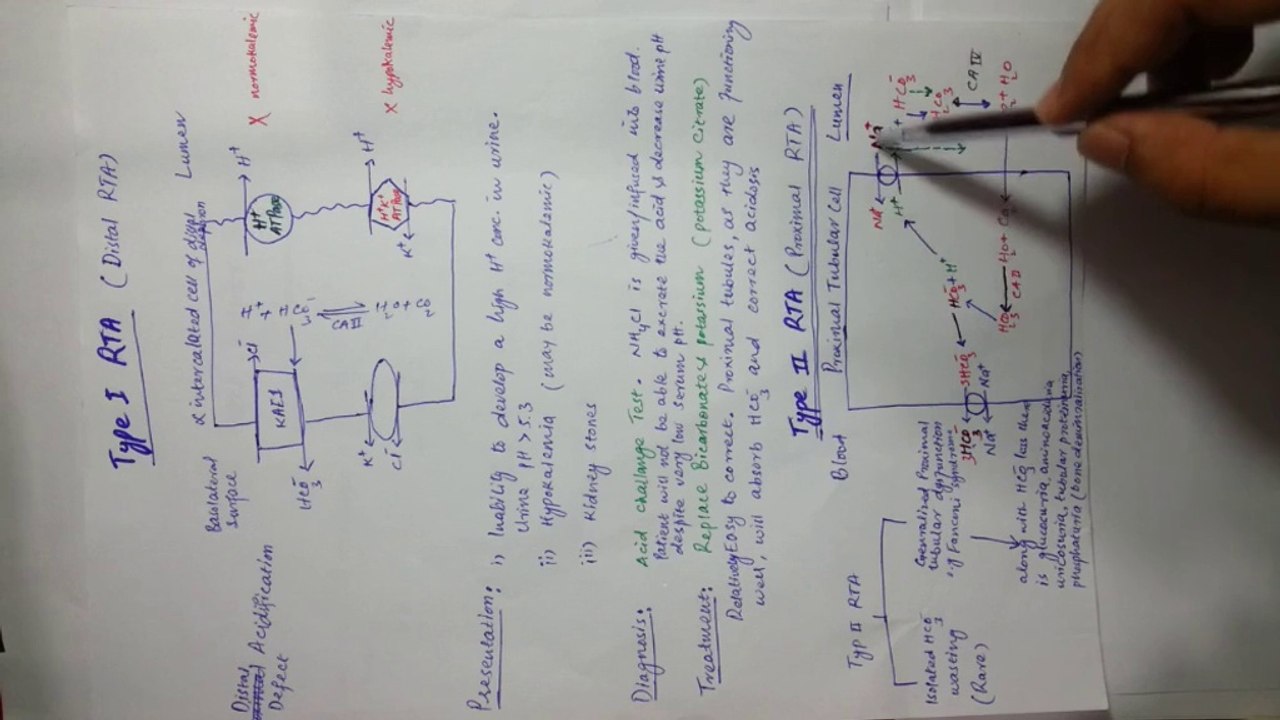 Type I RTA (Distal RTA)
Basolateral surface
α intercalated cell of distal
Lumen
Distal Acidification Defect
KAE1
Cl⁻
HCO₃⁻
H⁺ ATPase
H⁺
X normokalemic
H⁺K⁺ ATPase
H⁺
K⁺
X hypokalemic
CA II
H₂O + CO₂
K⁺
Cl⁻
Presentation:
i) Inability to develop a high H⁺ conc. in urine.
Urine pH > 5.3
ii) Hypokalemia (may be normokalemic)
iii) Kidney stones
Diagnosis:
Acid challange Test. NH₄Cl is given/infused into blood.
Patient will not be able to excrete the acid & decrease urine pH
despite very low serum pH.
Treatment:
Replace Bicarbonate & potassium (potassium citrate)
Relatively Easy to correct. Proximal tubules, as they are functioning
well, will absorb HCO₃⁻ and correct acidosis
Type II RTA (Proximal RTA)
Blood
Proximal Tubular Cell
Lumen
Na⁺
Na⁺
H⁺
HCO₃⁻
CA IV
HCO₃⁻ + H⁺
3HCO₃⁻
3HCO₃⁻
Na⁺
Na⁺
H₂CO₃
CA II
H₂O + CO₂
Typ II RTA
Isolated HCO₃⁻
wasting
(Rare)
Generalized Proximal
tubular dysfunction
e.g Fanconi Syndrome
along with HCO₃⁻ loss there
is glucosuria, aminoaciduria
uricosuria, tubular proteinuria,
phosphaturia (bone demineralization)